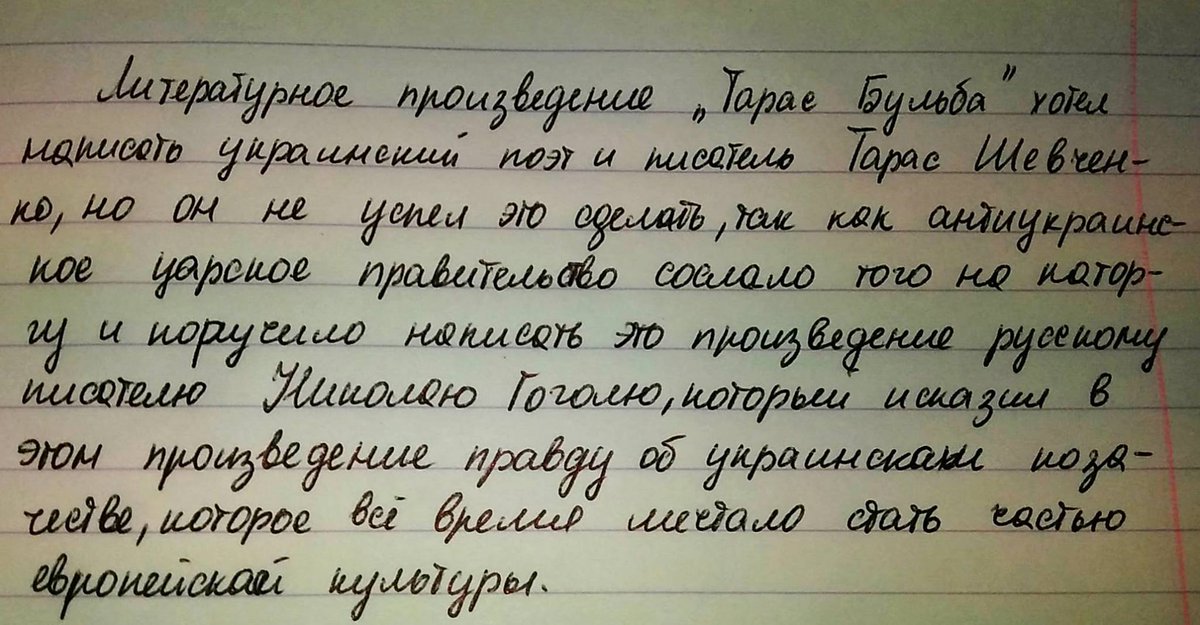 Литературное произведение „Тарас Бульба" хотел
написать украинский поэт и писатель Тарас Шевчен-
ко, но он не успел это сделать, так как антиукраинс-
кое царское правительство сослало того на катор-
гу и поручило написать это произведение русскому
писателю Николаю Гоголю, который исказил в
этом произведение правду об украинскам коза-
честве, которое всё время мечтало стать частью
европейской культуры.